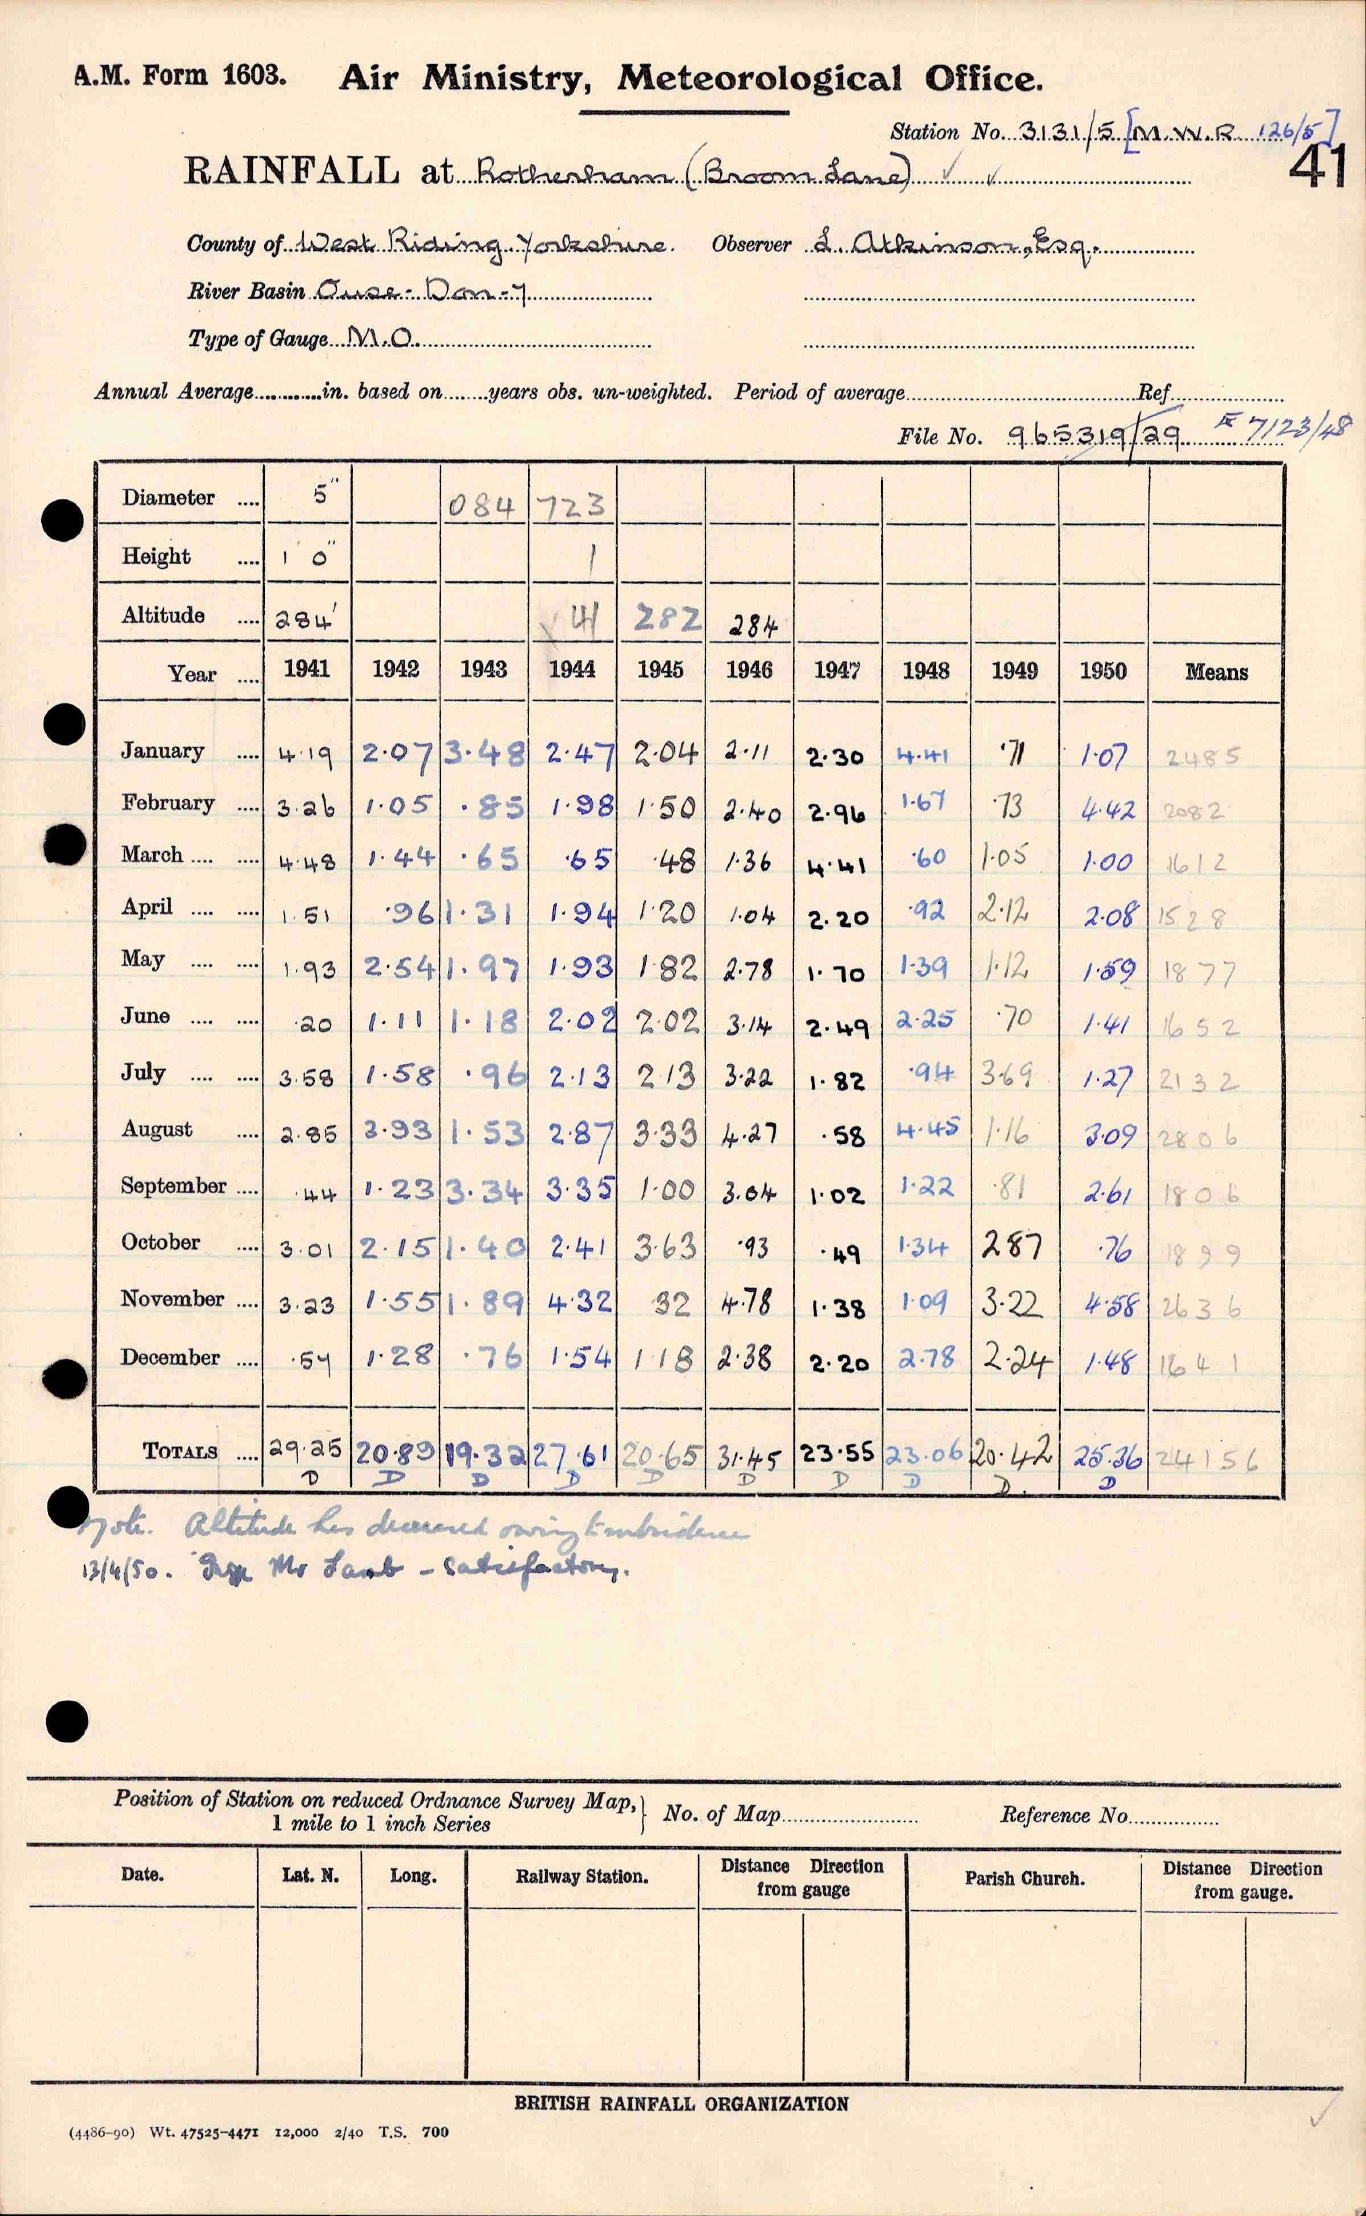 A.M. Form 1603. Air Ministry, Meteorological Office.
Station No. 3131/5 [M.W.R. 126/5]
41
RAINFALL at Rotherham (Broom Lane) ✓ ✓
County of West Riding Yorkshire. Observer L. Atkinson, Esq.
River Basin Ouse - Don - 7
Type of Gauge M.O.
Annual Average............in. based on........years obs. un-weighted. Period of average........ Ref........
File No. 965319/29 7123/48
Diameter .... 5" 084 723
Height .... 1' 0" 1
Altitude .... 284' 282 284
Year .... 1941 1942 1943 1944 1945 1946 1947 1948 1949 1950 Means
January .... 4.19 2.07 3.48 2.47 2.04 2.11 2.30 4.41 .71 1.07 2485
February .... 3.26 1.05 .85 1.98 1.50 2.40 2.96 1.67 .73 4.42 2082
March .... .... 4.48 1.44 .65 .65 .48 1.36 4.41 .60 1.05 1.00 1612
April .... .... 1.51 .96 1.31 1.94 1.20 1.04 2.20 .92 2.12 2.08 1528
May .... .... 1.93 2.54 1.97 1.93 1.82 2.78 1.70 1.39 1.12 1.59 1877
June .... .... .20 1.11 1.18 2.02 2.02 3.14 2.49 2.25 .70 1.41 1652
July .... .... 3.58 1.58 .96 2.13 2.13 3.22 1.82 .94 3.69 1.27 2132
August .... 2.85 3.93 1.53 2.87 3.33 4.27 .58 4.45 1.16 3.09 2806
September .... .44 1.23 3.34 3.35 1.00 3.04 1.02 1.22 .81 2.61 1806
October .... 3.01 2.15 1.40 2.41 3.63 .93 .49 1.34 2.87 .76 1899
November .... 3.23 1.55 1.89 4.32 32 4.78 1.38 1.09 3.22 4.58 2636
December .... .57 1.28 .76 1.54 1 18 2.38 2.20 2.78 2.24 1.48 1641
TOTALS .... 29.25 20.89 19.32 27.61 20.65 31.45 23.55 23.06 20.42 25.36 24156
D D D D D D D D D. D
Note. Altitude has decreased owing to subsidence
13/4/50. Insp Mr Lamb - Satisfactory.
Position of Station on reduced Ordnance Survey Map, } No. of Map........ Reference No........
1 mile to 1 inch Series
Date. Lat. N. Long. Railway Station. Distance Direction from gauge Parish Church. Distance Direction from gauge.
BRITISH RAINFALL ORGANIZATION
(4486-90) Wt. 47525-4471 12,000 2/40 T.S. 700